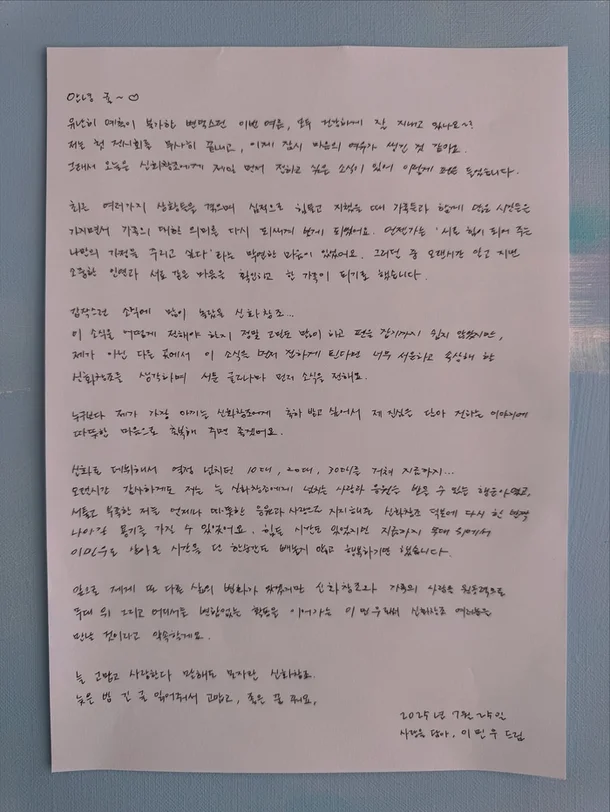 안녕 글~♡
유난히 예측이 불가한 변덕스런 이번 여름, 모두 건강하게 잘 지내고 있나요~?
저는 첫 전시회를 무사히 끝내고, 이제 잠시 마음의 여유가 생긴 것 같아요.
그래서 오늘은 신화창조에게 제일 먼저 전하고 싶은 소식이 있어 이렇게 펜을 들었습니다.
최근 여러가지 상황들을 겪으며 심적으로 힘들고 지쳤을 때 가족들과 함께 많은 시간들을
가지면서 가족에 대한 의미를 다시 되새기게 되었어요. 언젠가는 '서로 힘이 되어 주는
나만의 가정을 꾸리고 싶다'라는 막연한 마음이 있었어요. 그러던 중 오랜시간 알고 지낸
소중한 인연과 서로 같은 마음을 확인하고 한 가족이 되기로 했습니다.
갑작스런 소식에 많이 놀랐을 신화창조...
이 소식을 어떻게 전해야 할지 정말 고민도 많이 하고 펜을 잡기까지 쉽지 않았지만,
제가 아닌 다른 곳에서 이 소식을 먼저 접하게 된다면 너무 서운하고 속상해 할
신화창조를 생각하며 서툰 글로나마 먼저 소식을 전해요.
누구보다 제가 가장 아끼는 신화창조에게 축하 받고 싶어서 제 진심을 담아 전하는 이야기에
따뜻한 마음으로 축복해 주면 좋겠어요.
신화로 데뷔해서 열정 넘치던 10대, 20대, 30대를 거쳐 지금까지...
오랜시간 감사하게도 저는 늘 신화창조에게 넘치는 사랑과 응원을 받을 수 있는 행운아였고,
서툴고 부족한 저를 언제나 따뜻한 응원과 사랑으로 지지해준 신화창조 덕분에 다시 한 번
나아갈 용기를 가질 수 있었어요. 힘든 시간도 있었지만 지금까지 무대 위에서
이민우로 살아온 시간을 단 한순간도 빼놓지 않고 행복하기만 했습니다.
앞으로 제게 또 다른 삶의 변화가 있겠지만 신화창조와 가족의 사랑을 원동력으로
무대 위 그리고 어디서든 변함없는 활동을 이어가는 이민우로서 신화창조 여러분을
만날 것이라고 약속할게요.
늘 고맙고 사랑한다 말해도 모자란 신화창조.
늦은 밤 긴 글 읽어줘서 고맙고, 좋은 꿈 꿔요.
2025년 7월 25일
사랑을 담아, 이민우 드림